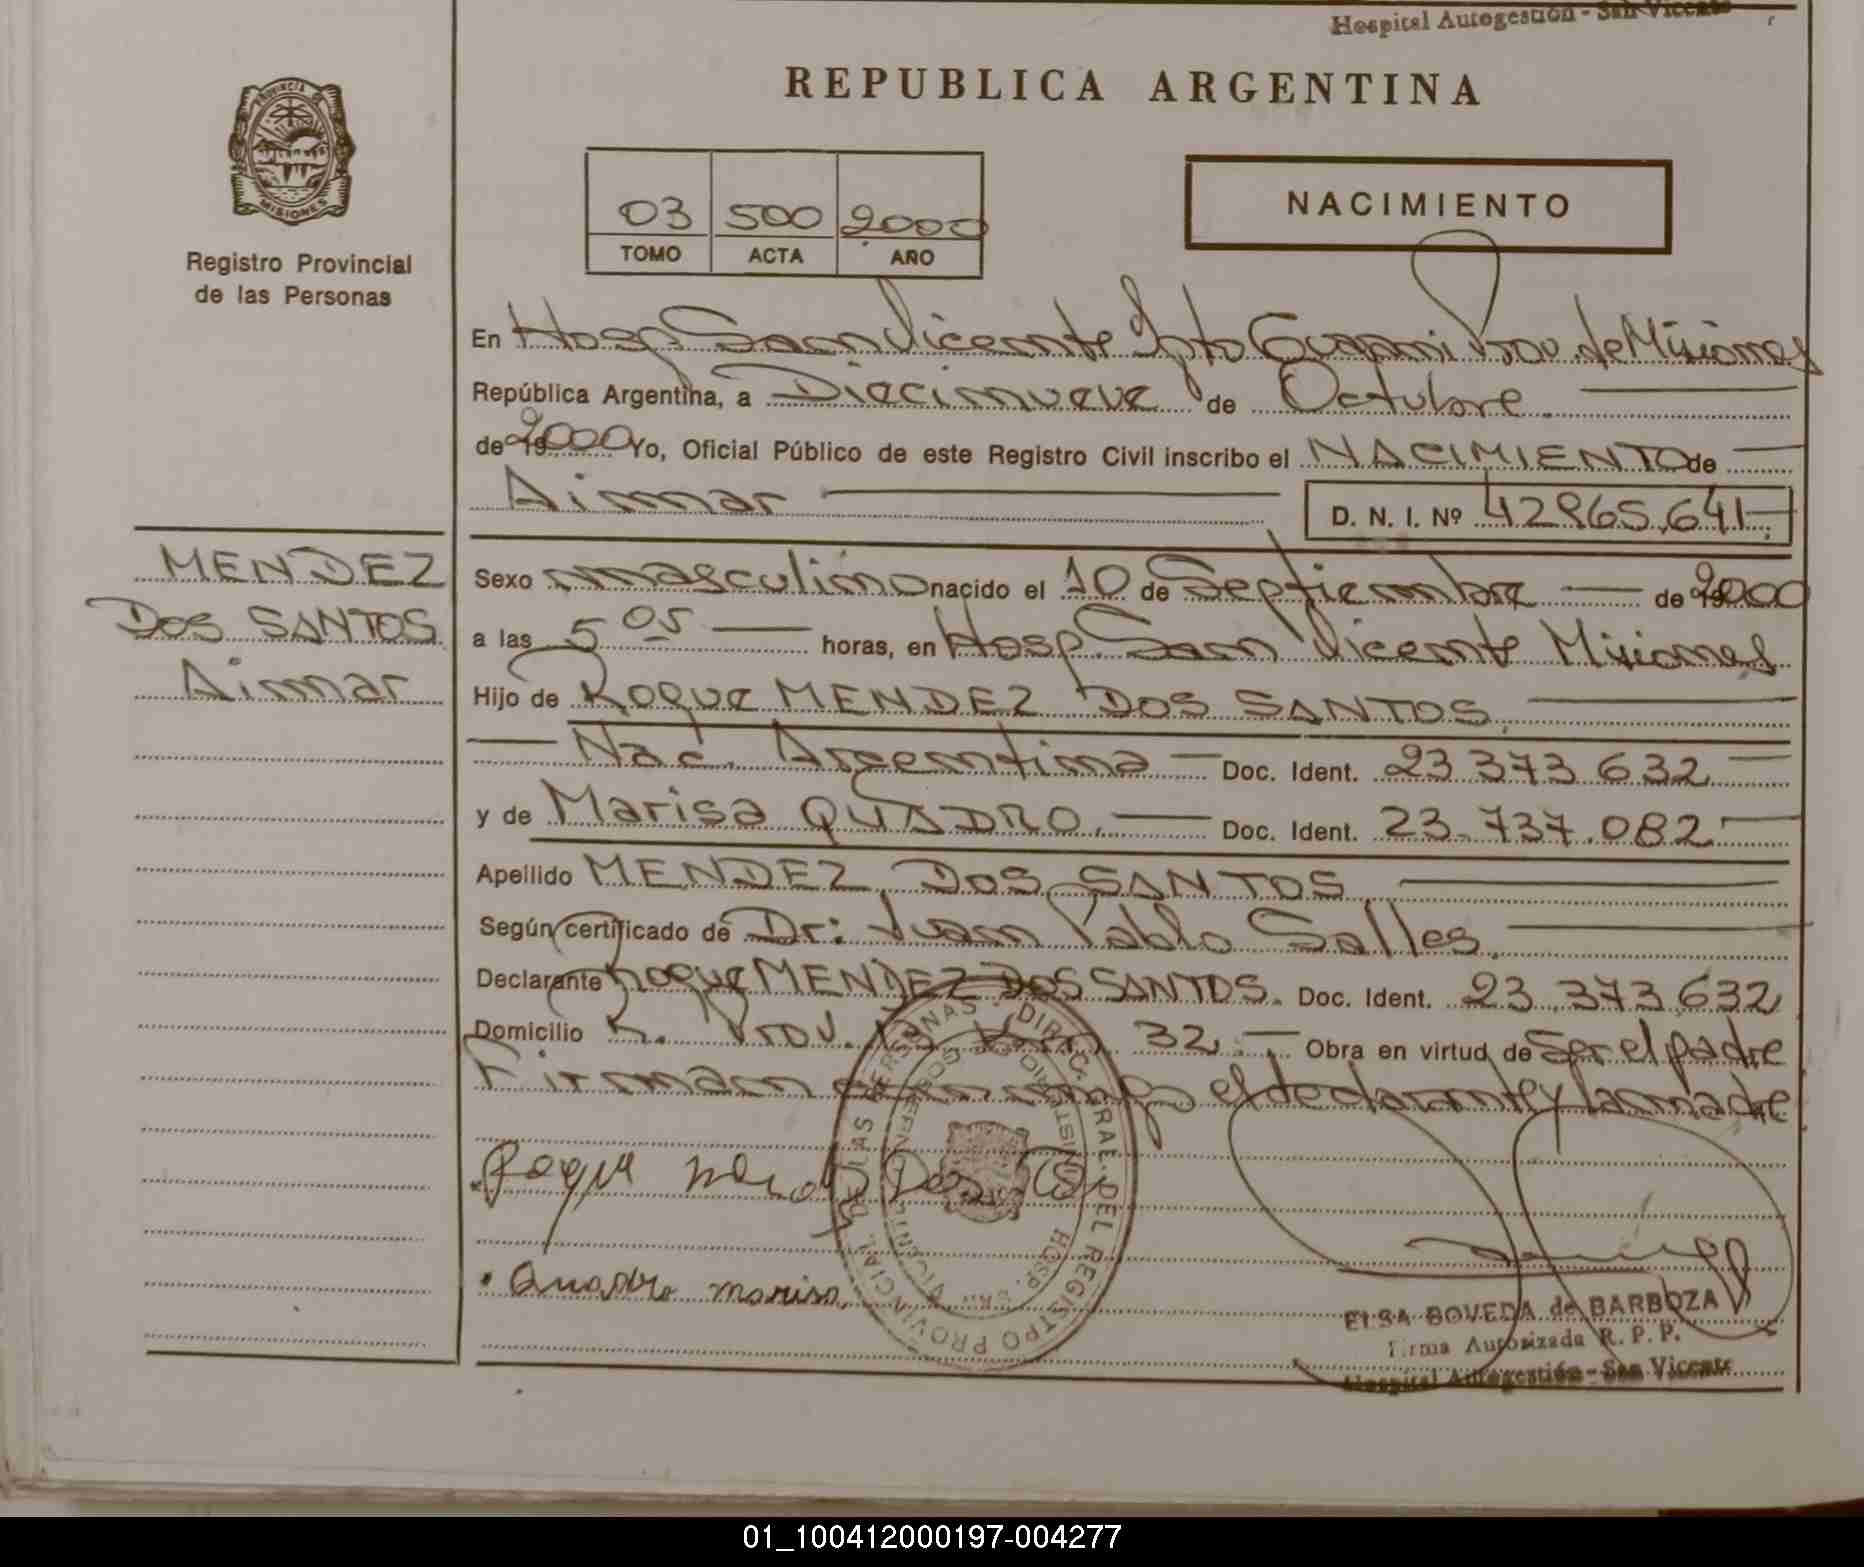 Hospital Autogestión - San Vicente
REPUBLICA ARGENTINA
PROVINCIA DE
MISIONES
Registro Provincial
de las Personas
03 500 2000
TOMO ACTA AÑO
NACIMIENTO
En Hosp. San Vicente Dpto Guarani Prov. de Misiones
República Argentina, a Diecinueve de Octubre
de 2000 Yo, Oficial Público de este Registro Civil inscribo el NACIMIENTO de
Aimar D. N. I. Nº 42865.641
MENDEZ
DOS SANTOS
Aimar
Sexo masculino nacido el 10 de Septiembre de 2000
a las 5 05 horas, en Hosp. San Vicente Misiones
Hijo de Roque MENDEZ DOS SANTOS
Nac. Argentina Doc. Ident. 23 373 632
y de Marisa QUADRO. Doc. Ident. 23.737.082
Apellido MENDEZ DOS SANTOS
Según certificado de Dr: Juan Pablo Salles.
Declarante Roque MENDEZ DOS SANTOS. Doc. Ident. 23.373.632
Domicilio R. Prov. 32. Obra en virtud de Ser el padre
Firman el declarante y la madre
Roque Mend Dos
Quadro marisa
DIREC. GRAL. DEL REGISTRO PROVINCIAL DE LAS PERSONAS
HOSP. SAN VICENTE
ELSA BOVEDA de BARBOZA
Firma Autorizada R. P. P.
Hospital Autogestión - San Vicente
01_100412000197-004277